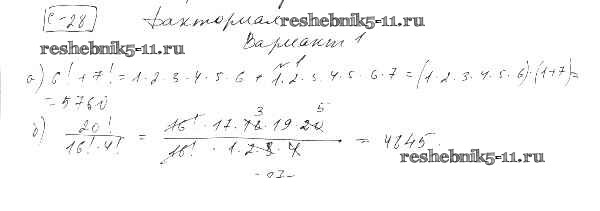 С-28 Факториал reshebnik5-11.ru
reshebnik5-11.ru Вариант 1
№1
а) 6! + 7! = 1·2·3·4·5·6 + 1·2·3·4·5·6·7 = (1·2·3·4·5·6)·(1+7)=
= 5760
б) 20! / 16!·4! = 16!·17·18·19·20 / 16!·1·2·3·4 = 4845.
3 5
reshebnik5-11.ru